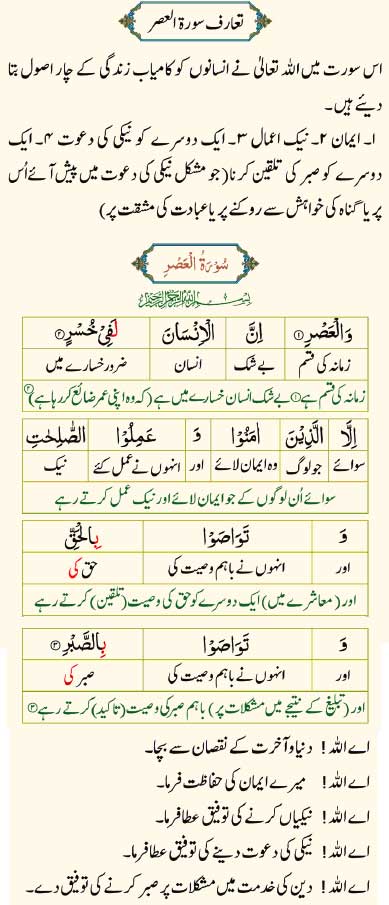 تعارف سورۃ العصر
اس سورت میں اللہ تعالیٰ نے انسانوں کو کامیاب زندگی کے چار اصول بتا
دیئے ہیں۔
۱۔ ایمان ۲۔ نیک اعمال ۳۔ ایک دوسرے کو نیکی کی دعوت ۴۔ ایک
دوسرے کو صبر کی تلقین کرنا (جو مشکل نیکی کی دعوت میں پیش آئے اُس
پر یا گناہ کی خواہش سے روکنے پر یا عبادت کی مشقت پر)
سُوْرَةُ الْعَصْرِ
بِسْمِ اللّٰهِ الرَّحْمٰنِ الرَّحِيْمِ
وَالْعَصْرِ ۱ اِنَّ الْاِنْسَانَ لَفِيْ خُسْرٍ ۲
زمانہ کی قسم بے شک انسان ضرور خسارے میں
زمانہ کی قسم ہے ۱ بے شک انسان خسارے میں ہے (کہ وہ اپنی عمر ضائع کر رہا ہے) ۲
اِلَّا الَّذِيْنَ اٰمَنُوْا وَ عَمِلُوا الصّٰلِحٰتِ
سوائے جو لوگ وہ ایمان لائے اور انہوں نے عمل کئے نیک
سوائے اُن لوگوں کے جو ایمان لائے اور نیک عمل کرتے رہے
وَ تَوَاصَوْا بِالْحَقِّ
اور انہوں نے باہم وصیت کی حق کی
اور (معاشرے میں) ایک دوسرے کو حق کی وصیت (تلقین) کرتے رہے
وَ تَوَاصَوْا بِالصَّبْرِ ۳
اور انہوں نے باہم وصیت کی صبر کی
اور (تبلیغ کے نتیجے میں مشکلات پر) باہم صبر کی وصیت (تاکید) کرتے رہے ۳
اے اللہ! دنیا و آخرت کے نقصان سے بچا۔
اے اللہ! میرے ایمان کی حفاظت فرما۔
اے اللہ! نیکیاں کرنے کی توفیق عطا فرما۔
اے اللہ! نیکی کی دعوت دینے کی توفیق عطا فرما۔
اے اللہ! دین کی خدمت میں مشکلات پر صبر کرنے کی توفیق دے۔